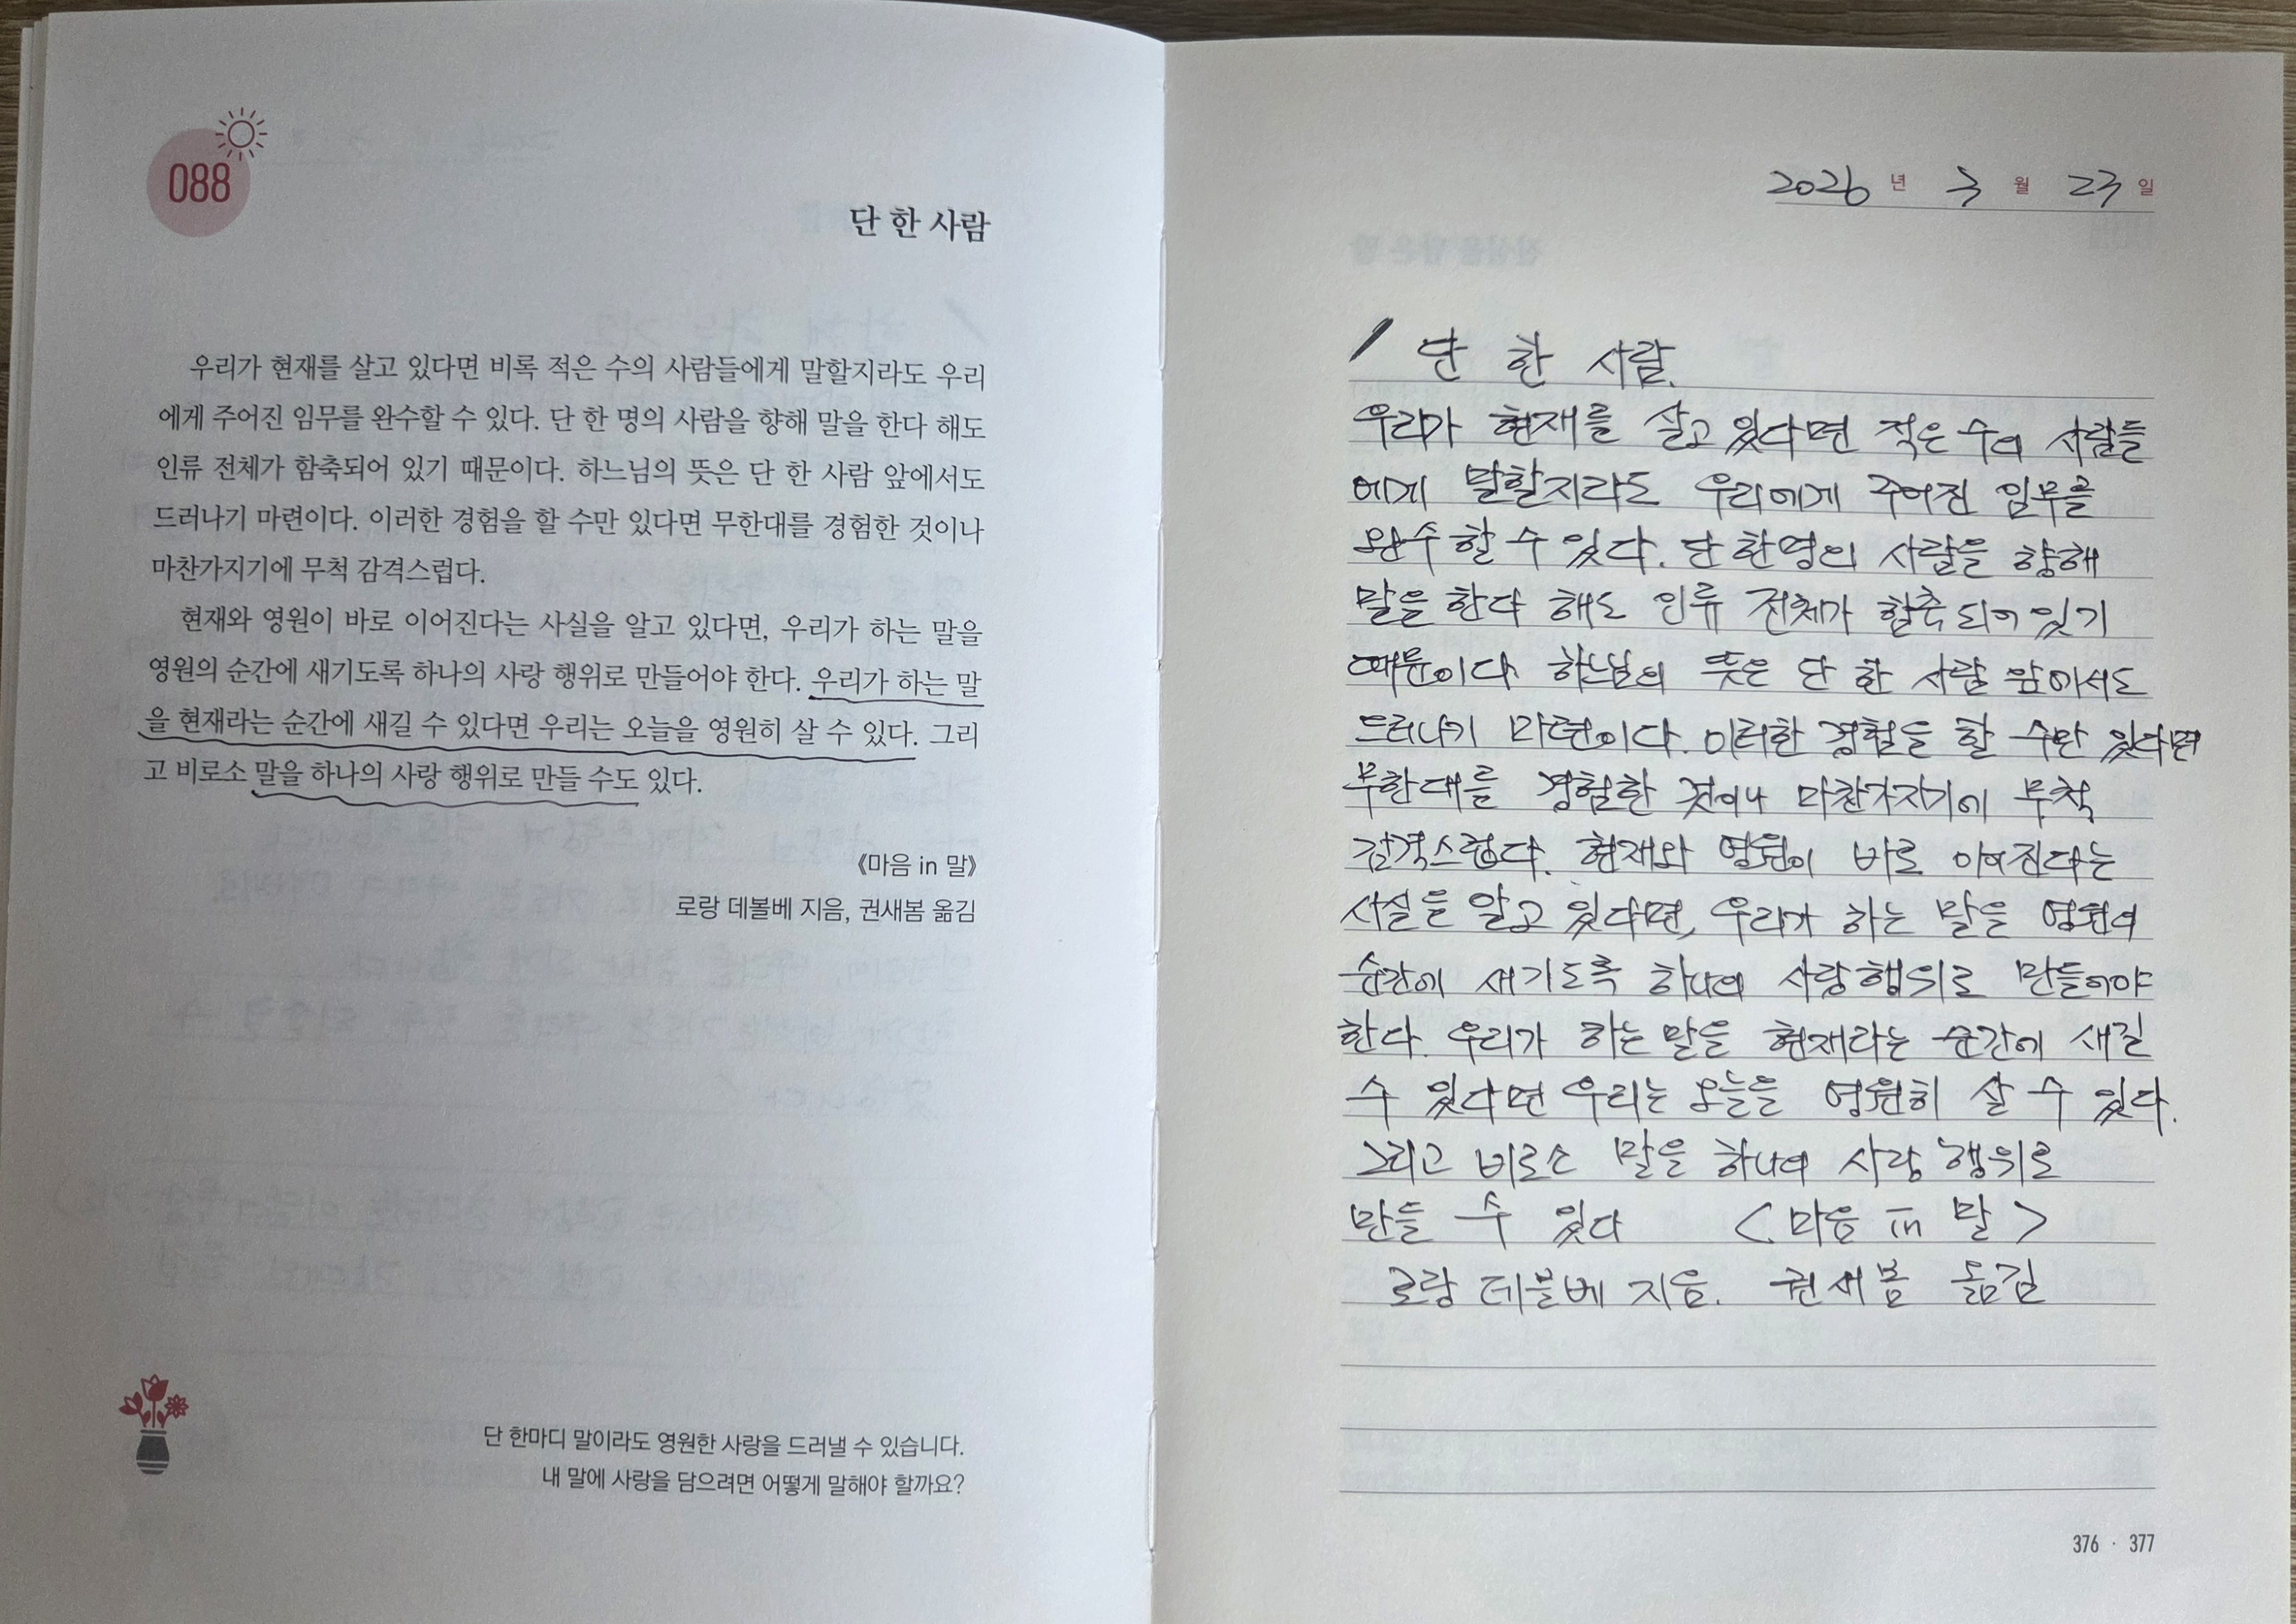 088
단 한 사람
우리가 현재를 살고 있다면 비록 적은 수의 사람들에게 말할지라도 우리
에게 주어진 임무를 완수할 수 있다. 단 한 명의 사람을 향해 말을 한다 해도
인류 전체가 함축되어 있기 때문이다. 하느님의 뜻은 단 한 사람 앞에서도
드러나기 마련이다. 이러한 경험을 할 수만 있다면 무한대를 경험한 것이나
마찬가지기에 무척 감격스럽다.
현재와 영원이 바로 이어진다는 사실을 알고 있다면, 우리가 하는 말을
영원의 순간에 새기도록 하나의 사랑 행위로 만들어야 한다. 우리가 하는 말
을 현재라는 순간에 새길 수 있다면 우리는 오늘을 영원히 살 수 있다. 그리
고 비로소 말을 하나의 사랑 행위로 만들 수도 있다.
《마음 in 말》
로랑 데볼베 지음, 권새봄 옮김
단 한마디 말이라도 영원한 사랑을 드러낼 수 있습니다.
내 말에 사랑을 담으려면 어떻게 말해야 할까요?
2026 년 3 월 23 일
단 한 사람.
우리가 현재를 살고 있다면 적은 수의 사람들
에게 말할지라도 우리에게 주어진 임무를
완수할 수 있다. 단 한명의 사람을 향해
말을 한다 해도 인류 전체가 함축되어 있기
때문이다 하느님의 뜻은 단 한 사람 앞에서도
드러나기 마련이다. 이러한 경험을 할 수만 있다면
무한대를 경험한 것이나 마찬가지기에 무척
감격스럽다. 현재와 영원이 바로 이어진다는
사실을 알고 있다면, 우리가 하는 말을 영원의
순간에 새기도록 하나의 사랑 행위로 만들어야
한다. 우리가 하는 말을 현재라는 순간에 새길
수 있다면 우리는 오늘을 영원히 살 수 있다.
그리고 비로소 말을 하나의 사랑 행위로
만들 수 있다 <마음 in 말>
로랑 데볼베 지음. 권새봄 옮김
376 · 377